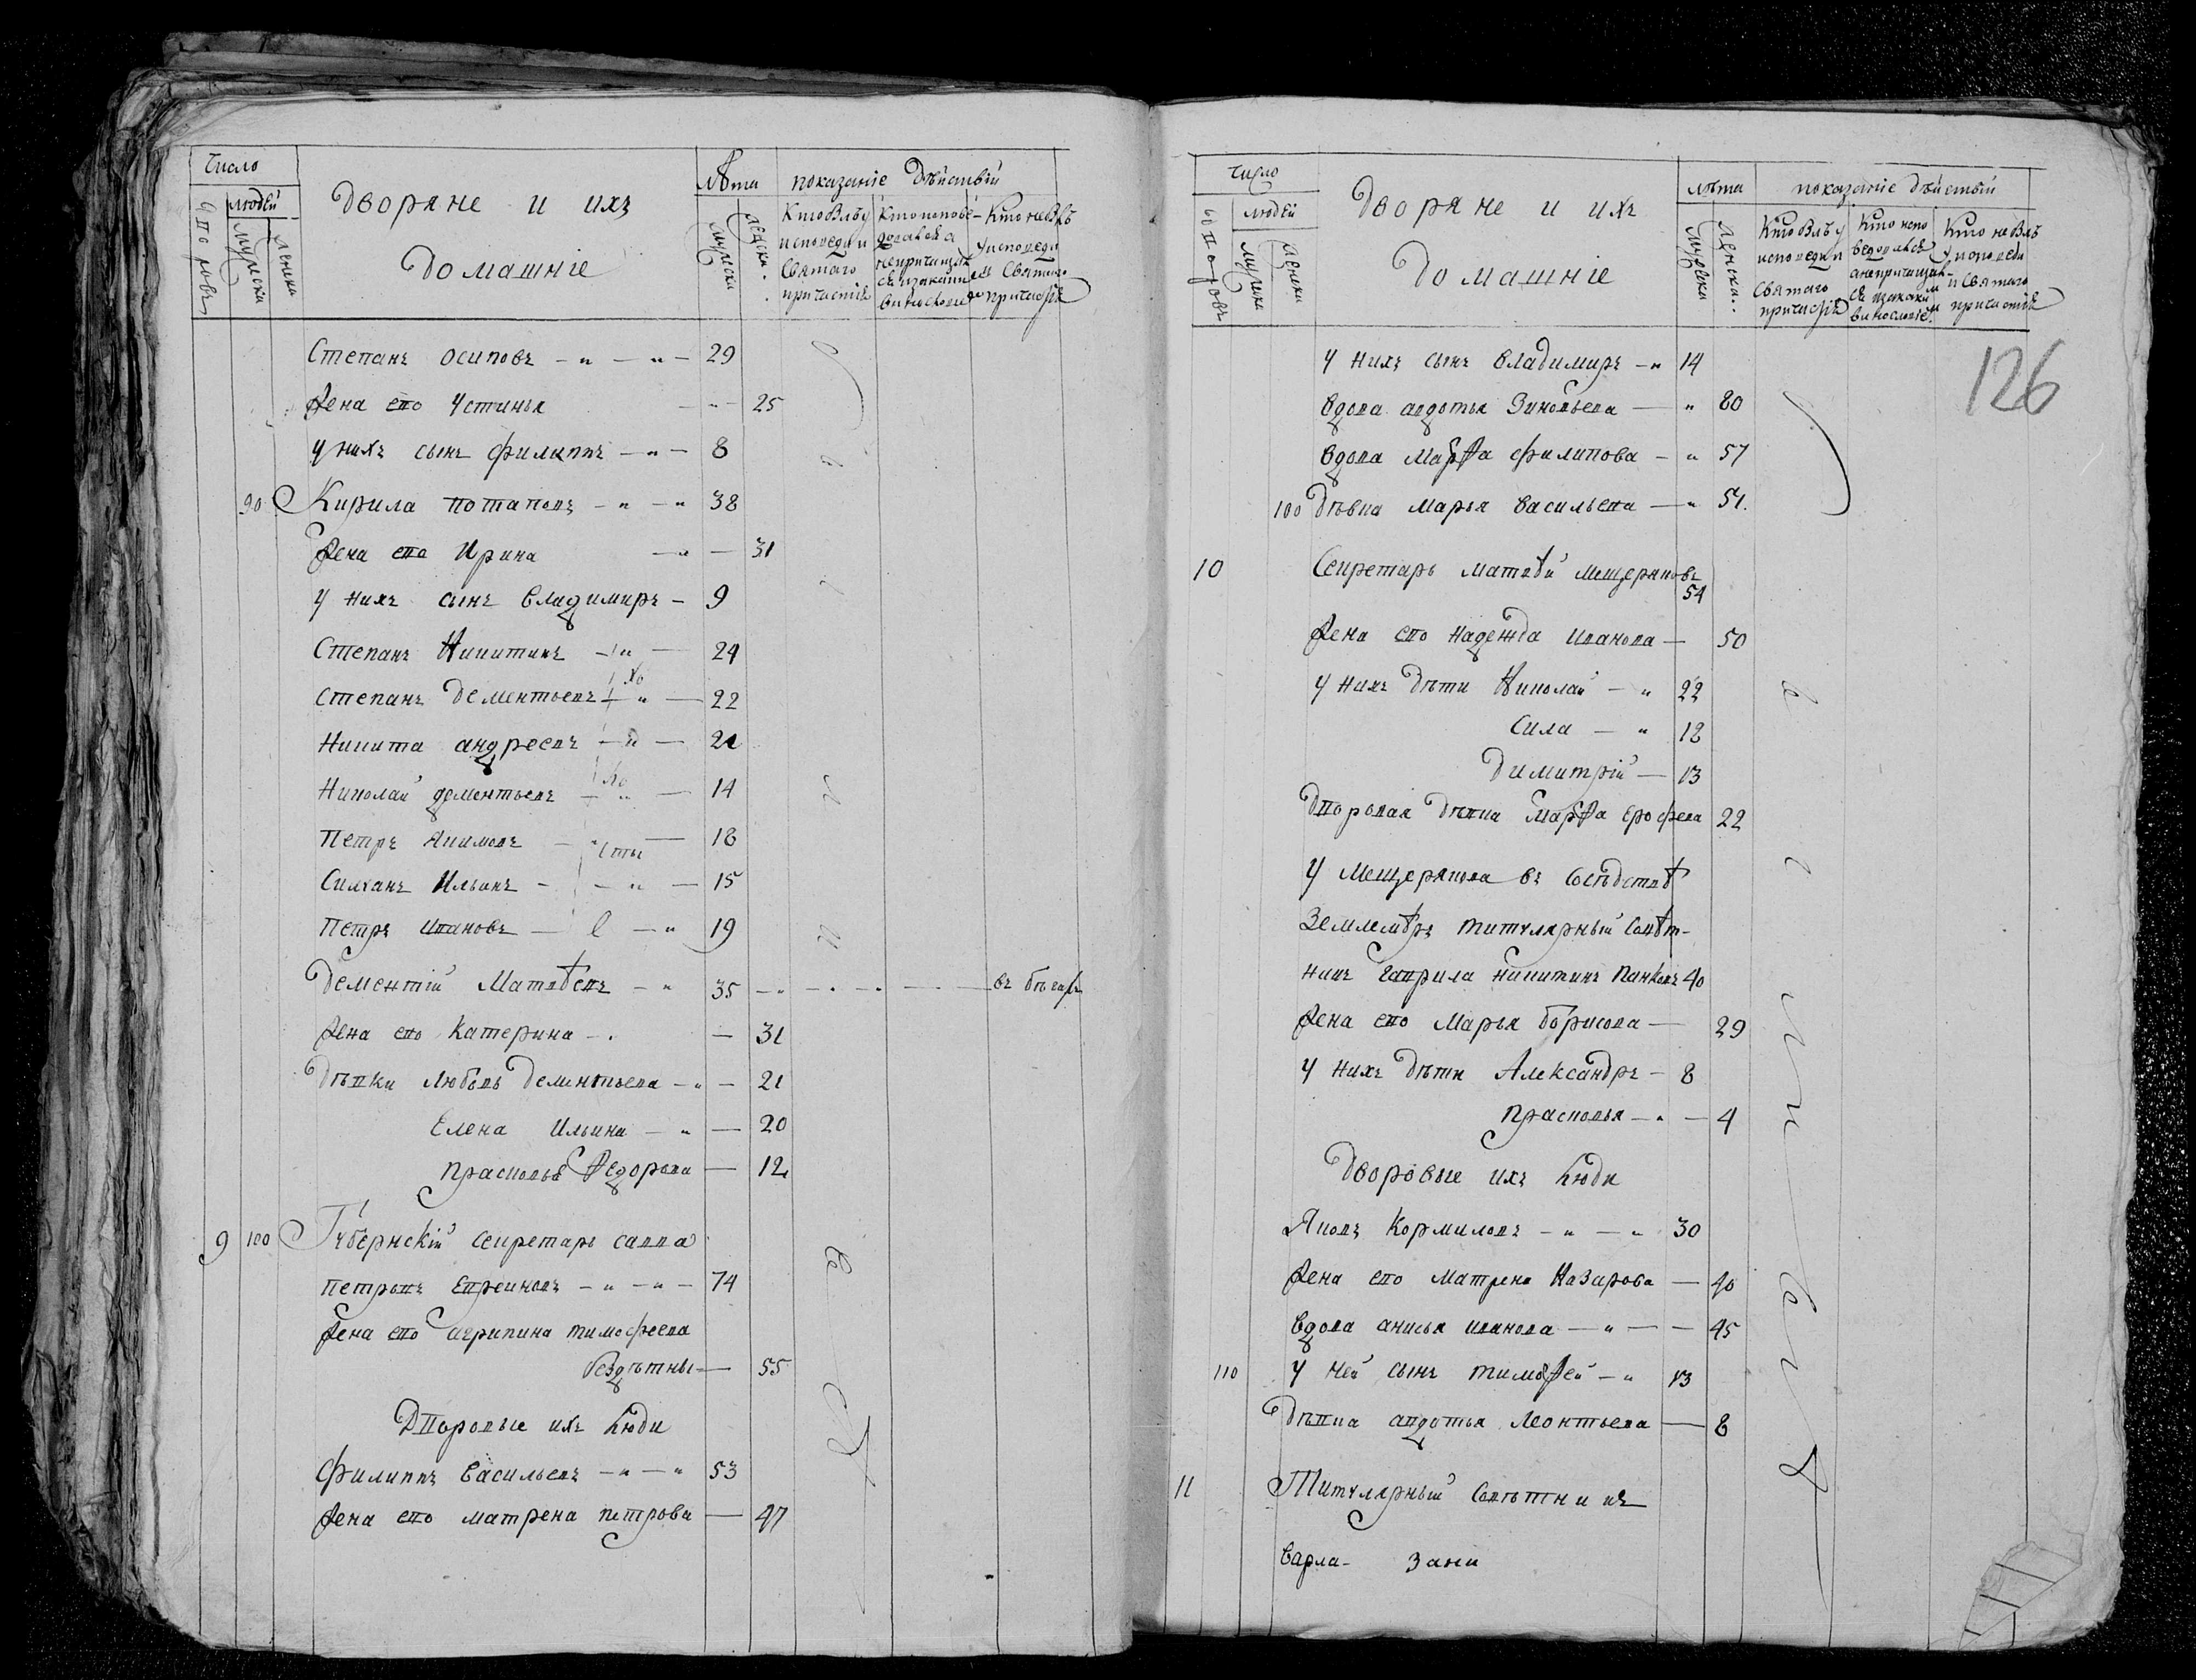 Число
людей
дворовъ
мужеска
женска
Дворяне и ихъ
домашніе
Лѣта
мужеска
женска
показаніе дѣйствій
Кто былъ у исповеди и святаго причастія
Кто исповедался а непричащался и закакимъ винословіемъ
Кто не былъ у исповеди и святаго причастія
Степанъ осиповъ 29
жена его Устинья 25
у нихъ сынъ филиппъ 8
90 Кирила потаповъ 38
жена его Ирина 31
у нихъ сынъ владимиръ 9
Степанъ Никитинъ 24
степанъ Дементьевъ 22
Никита андреевъ 21
Николай дементьевъ 14
петръ Акимовъ 18
Силуанъ Ильинъ 15
петръ ивановъ 19
Дементій Матвѣевъ 35 въ бѣгахъ
жена его катерина 31
Дѣвки любовь Дементьева 21
Елена Ильина 20
прасковья Ѳедорова 12
9 100 Губернскій секретарь савва
петровъ 74
жена его агрипина тимофеева
бездѣтны 55
Дворовые ихъ люди
филиппъ васильевъ 53
жена его матрена петрова 47
126
число
людей
дворовъ
мужеска
женска
дворяне и ихъ
домашніе
лѣта
мужеска
женска
показаніе дѣйствій
Кто былъ у исповеди и святаго причастія
Кто исповедался а непричащался и закакимъ винословіемъ
Кто не былъ у исповеди и святаго причастія
у нихъ сынъ владимиръ 14
вдова авдотья Зиновьева 80
вдова марѳа филипова 57
100 дѣвка марья васильева 51
10 Секретарь матвѣй мещеряковъ
54
жена его надежда иванова 50
у нихъ дѣти Николай 22
Сила 18
димитрій 13
Дворовая дѣвка марѳа ерофеева 22
у мещерякова въ соседствѣ
Землемѣръ титулярный совѣт-
никъ гаврила никитинъ панковъ 40
жена его марья борисова 29
у нихъ дѣти Александръ 8
прасковья 4
дворовые ихъ люди
Яковъ Кормиловъ 30
жена его матрена Назарова 40
вдова анисья иванова 45
110 у ней сынъ тимоѳей 13
дѣвка авдотья леонтьева 8
11 Титулярный Советникъ